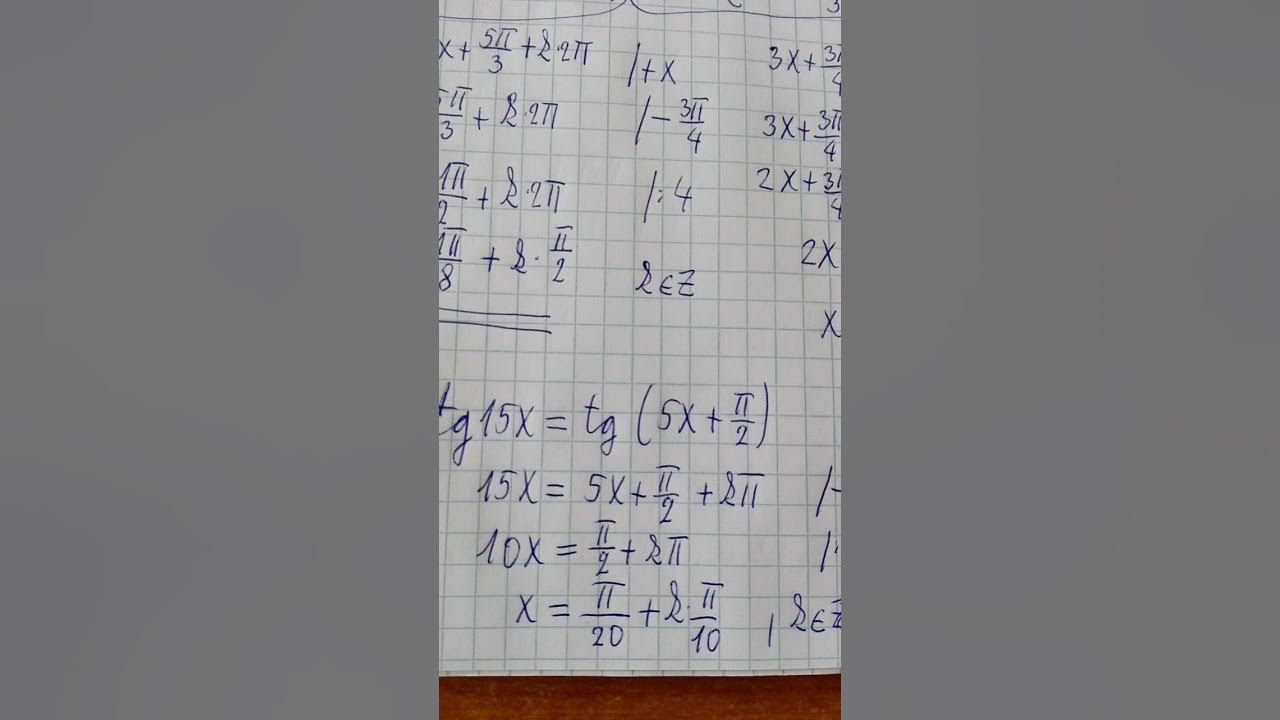 x + 5π/3 + k·2π |+x 3x + 3π/4
5π/3 + k·2π |- 3π/4 3x + 3π/4
π/2 + k·2π |:4 2x + 3π/4
π/8 + k·π/2 k∈Z 2x
x
tg 15x = tg (5x + π/2)
15x = 5x + π/2 + kπ |-
10x = π/2 + kπ |:
x = π/20 + k·π/10 , k∈Z